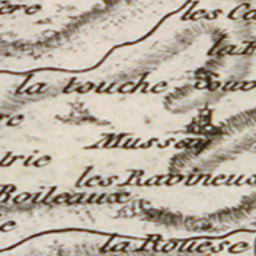 ere
les Ca
la F
la touche
Couv
re
Mussay
trie
les Ravineus
Boileaux
e
la Rouese